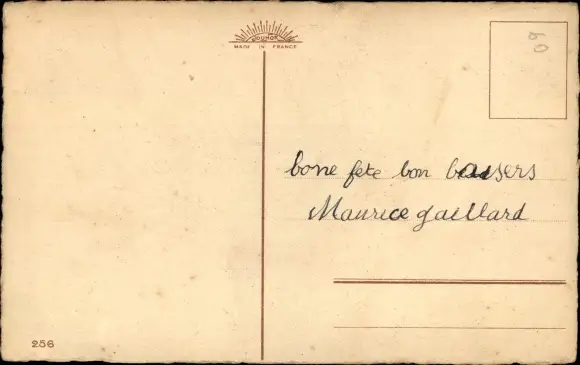 MADE IN FRANCE
60
bone fete bon baisers
Maurice gaillard
256